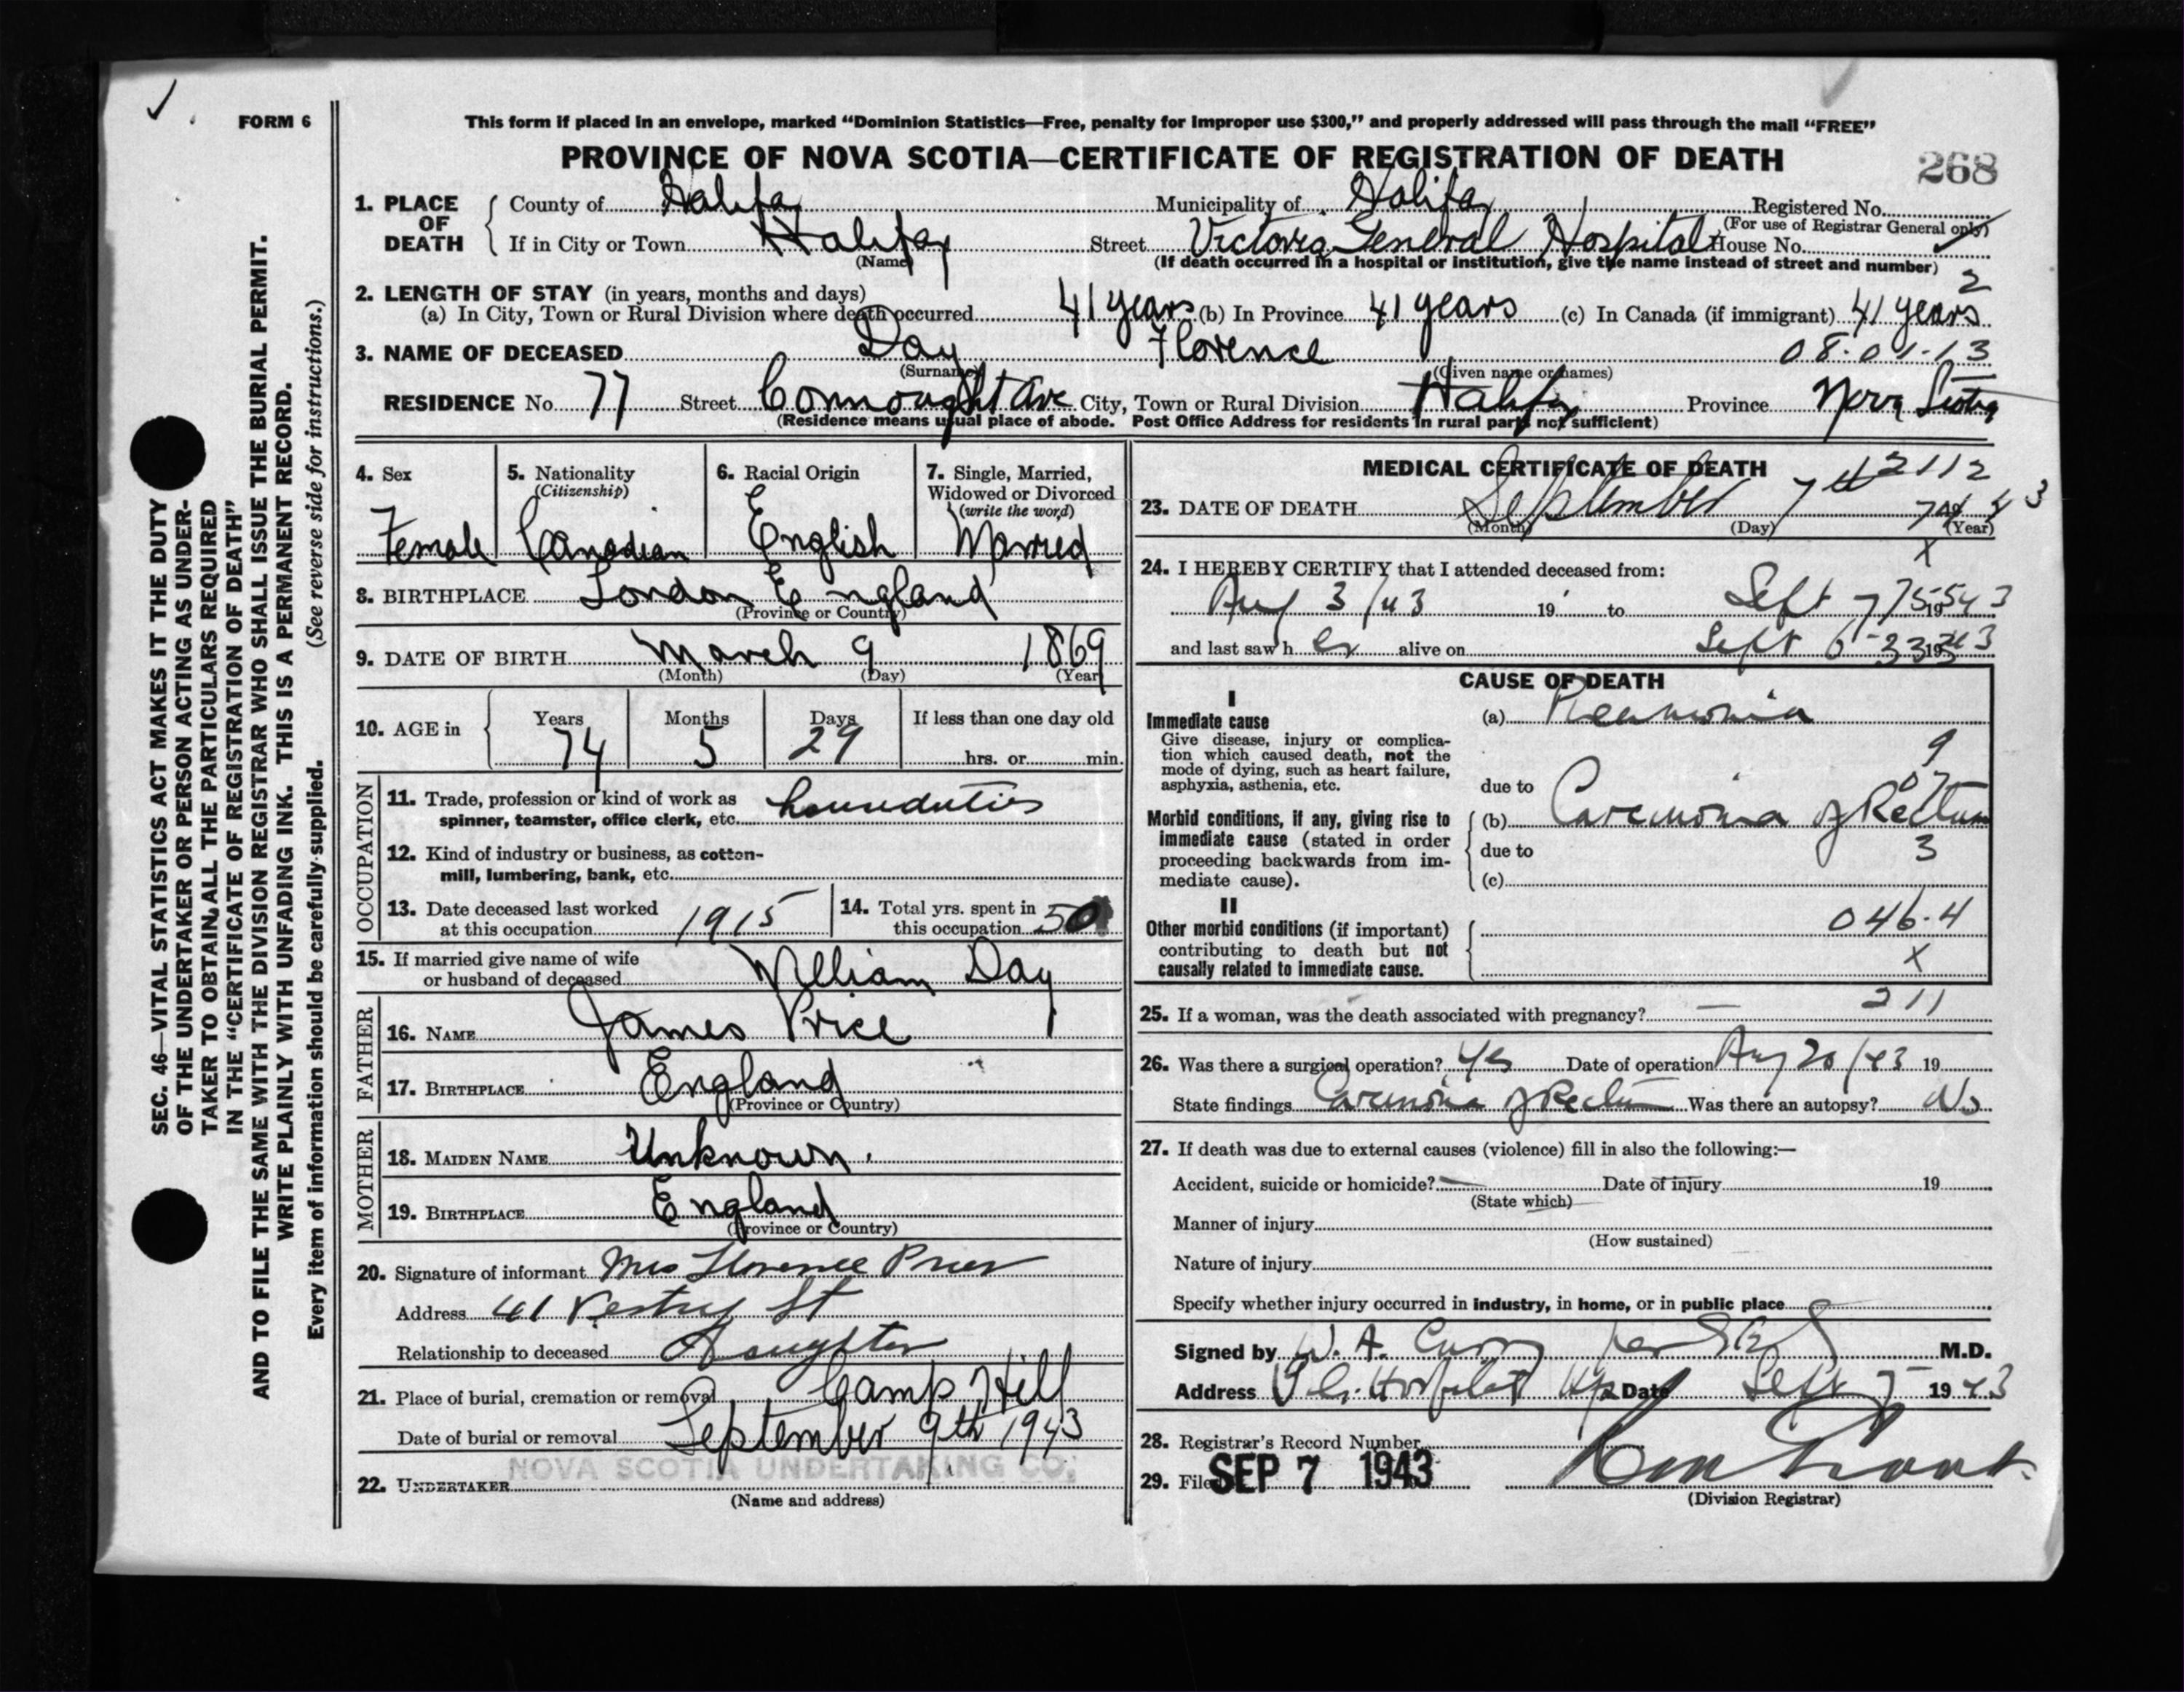 FORM 6
This form if placed in an envelope, marked “Dominion Statistics—Free, penalty for improper use $300,” and properly addressed will pass through the mail “FREE”
PROVINCE OF NOVA SCOTIA—CERTIFICATE OF REGISTRATION OF DEATH
268
1. PLACE OF DEATH
County of Halifax Municipality of Halifax Registered No.
(For use of Registrar General only)
If in City or Town Halifax Street Victoria General Hospital House No.
(Name) (If death occurred in a hospital or institution, give the name instead of street and number)
2
2. LENGTH OF STAY (in years, months and days)
(a) In City, Town or Rural Division where death occurred 41 years (b) In Province 41 years (c) In Canada (if immigrant) 41 years
3. NAME OF DECEASED Day Florence 08-01-13
(Surname) (Given name or names)
RESIDENCE No. 77 Street Connought Ave City, Town or Rural Division Halifax Province Nova Scotia
(Residence means usual place of abode. Post Office Address for residents in rural parts not sufficient)
4. Sex
Female
5. Nationality
(Citizenship)
Canadian
6. Racial Origin
English
7. Single, Married, Widowed or Divorced
(write the word)
Married
8. BIRTHPLACE London England
(Province or Country)
9. DATE OF BIRTH March 9 1869
(Month) (Day) (Year)
10. AGE in Years Months Days If less than one day old
74 5 29 hrs. or min.
OCCUPATION
11. Trade, profession or kind of work as
spinner, teamster, office clerk, etc. houseduties
12. Kind of industry or business, as cotton-
mill, lumbering, bank, etc.
13. Date deceased last worked
at this occupation 1915
14. Total yrs. spent in
this occupation 50
15. If married give name of wife
or husband of deceased William Day
FATHER
16. NAME James Price
17. BIRTHPLACE England
(Province or Country)
MOTHER
18. MAIDEN NAME Unknown
19. BIRTHPLACE England
(Province or Country)
20. Signature of informant Mrs Florence
Address 41 Vestry St
Relationship to deceased Daughter
21. Place of burial, cremation or removal Camp Hill
Date of burial or removal September 9th 1943
22. UNDERTAKER NOVA SCOTIA UNDERTAKING CO.
(Name and address)
MEDICAL CERTIFICATE OF DEATH
2112
23. DATE OF DEATH September 7th 43
(Month) (Day) (Year)
X
24. I HEREBY CERTIFY that I attended deceased from:
Aug 3/43 19 to Sept 7 19 43
and last saw her alive on Sept 6 19 43
CAUSE OF DEATH
I
Immediate cause
Give disease, injury or complica-
tion which caused death, not the
mode of dying, such as heart failure,
asphyxia, asthenia, etc.
(a) Pneumonia
9
07
due to
Morbid conditions, if any, giving rise to
immediate cause (stated in order
proceeding backwards from im-
mediate cause).
(b) Carcinoma of Rectum
due to
3
(c)
II
Other morbid conditions (if important)
contributing to death but not
causally related to immediate cause.
046.4
X
211
25. If a woman, was the death associated with pregnancy? —
26. Was there a surgical operation? Yes Date of operation Aug 20/43 19
State findings Carcinoma of Rectum Was there an autopsy? No
27. If death was due to external causes (violence) fill in also the following:—
Accident, suicide or homicide? Date of injury 19
(State which)
Manner of injury
(How sustained)
Nature of injury
Specify whether injury occurred in industry, in home, or in public place
Signed by W. A. Curry per M.D.
Address V. G. Hospital Date Sept 7 1943
28. Registrar's Record Number
29. Filed SEP 7 1943
(Division Registrar)
SEC. 46—VITAL STATISTICS ACT MAKES IT THE DUTY
OF THE UNDERTAKER OR PERSON ACTING AS UNDER-
TAKER TO OBTAIN ALL THE PARTICULARS REQUIRED
IN THE “CERTIFICATE OF REGISTRATION OF DEATH”
AND TO FILE THE SAME WITH THE DIVISION REGISTRAR WHO SHALL ISSUE THE BURIAL PERMIT.
WRITE PLAINLY WITH UNFADING INK. THIS IS A PERMANENT RECORD.
Every item of information should be carefully supplied. (See reverse side for instructions.)